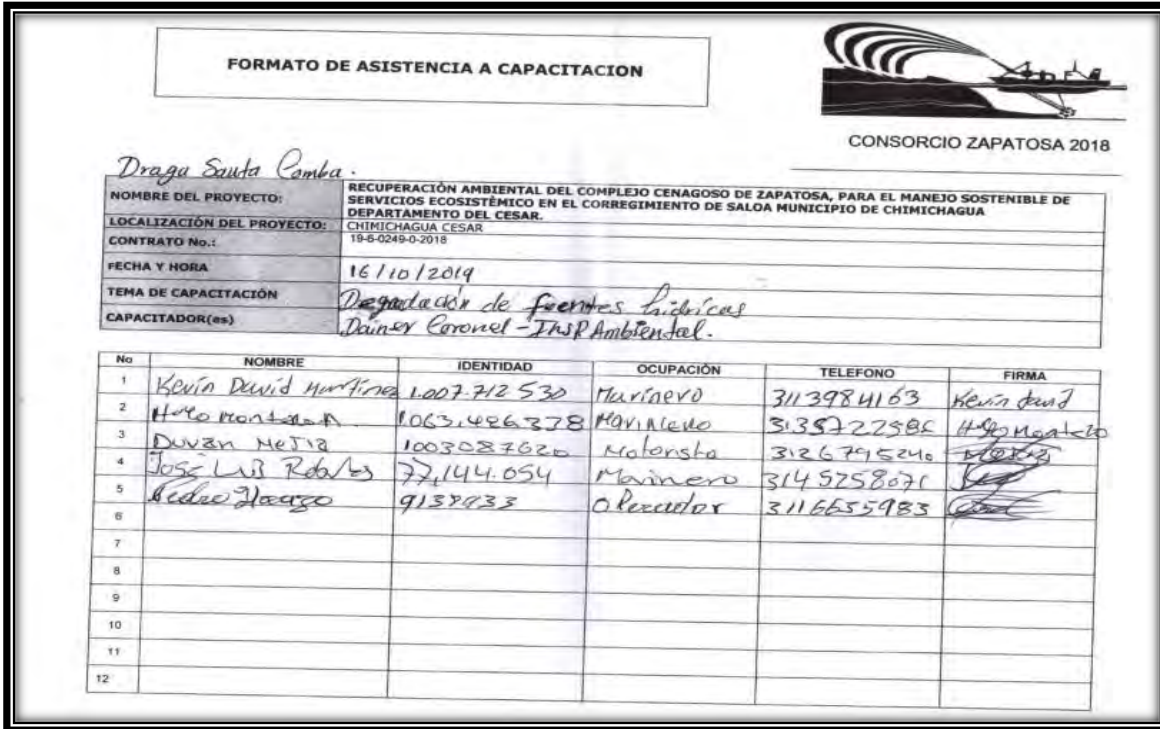 FORMATO DE ASISTENCIA A CAPACITACION
CONSORCIO ZAPATOSA 2018
Draga Santa Comba.
NOMBRE DEL PROYECTO: RECUPERACIÓN AMBIENTAL DEL COMPLEJO CENAGOSO DE ZAPATOSA, PARA EL MANEJO SOSTENIBLE DE
SERVICIOS ECOSISTÈMICO EN EL CORREGIMIENTO DE SALOA MUNICIPIO DE CHIMICHAGUA
DEPARTAMENTO DEL CESAR.
LOCALIZACIÓN DEL PROYECTO: CHIMICHAGUA CESAR
CONTRATO No.: 19-6-0249-0-2018
FECHA Y HORA 16/10/2019
TEMA DE CAPACITACIÓN Degradación de fuentes hidricas
CAPACITADOR(es) Dainer Coronel - Insp Ambiental.
No NOMBRE IDENTIDAD OCUPACIÓN TELEFONO FIRMA
1 Kevin David Martinez 1.007.712.530 Marinero 3113984163 Kevin david
2 1.063.486.378 Marinero
3 Duvan Mejia 1003087620 Motorista 3126795240 Mejia
4 José Luis Robles 77,144.054 Marinero 3145258071
5 Pedro 9138933 Operador 3116655983
6
7
8
9
10
11
12